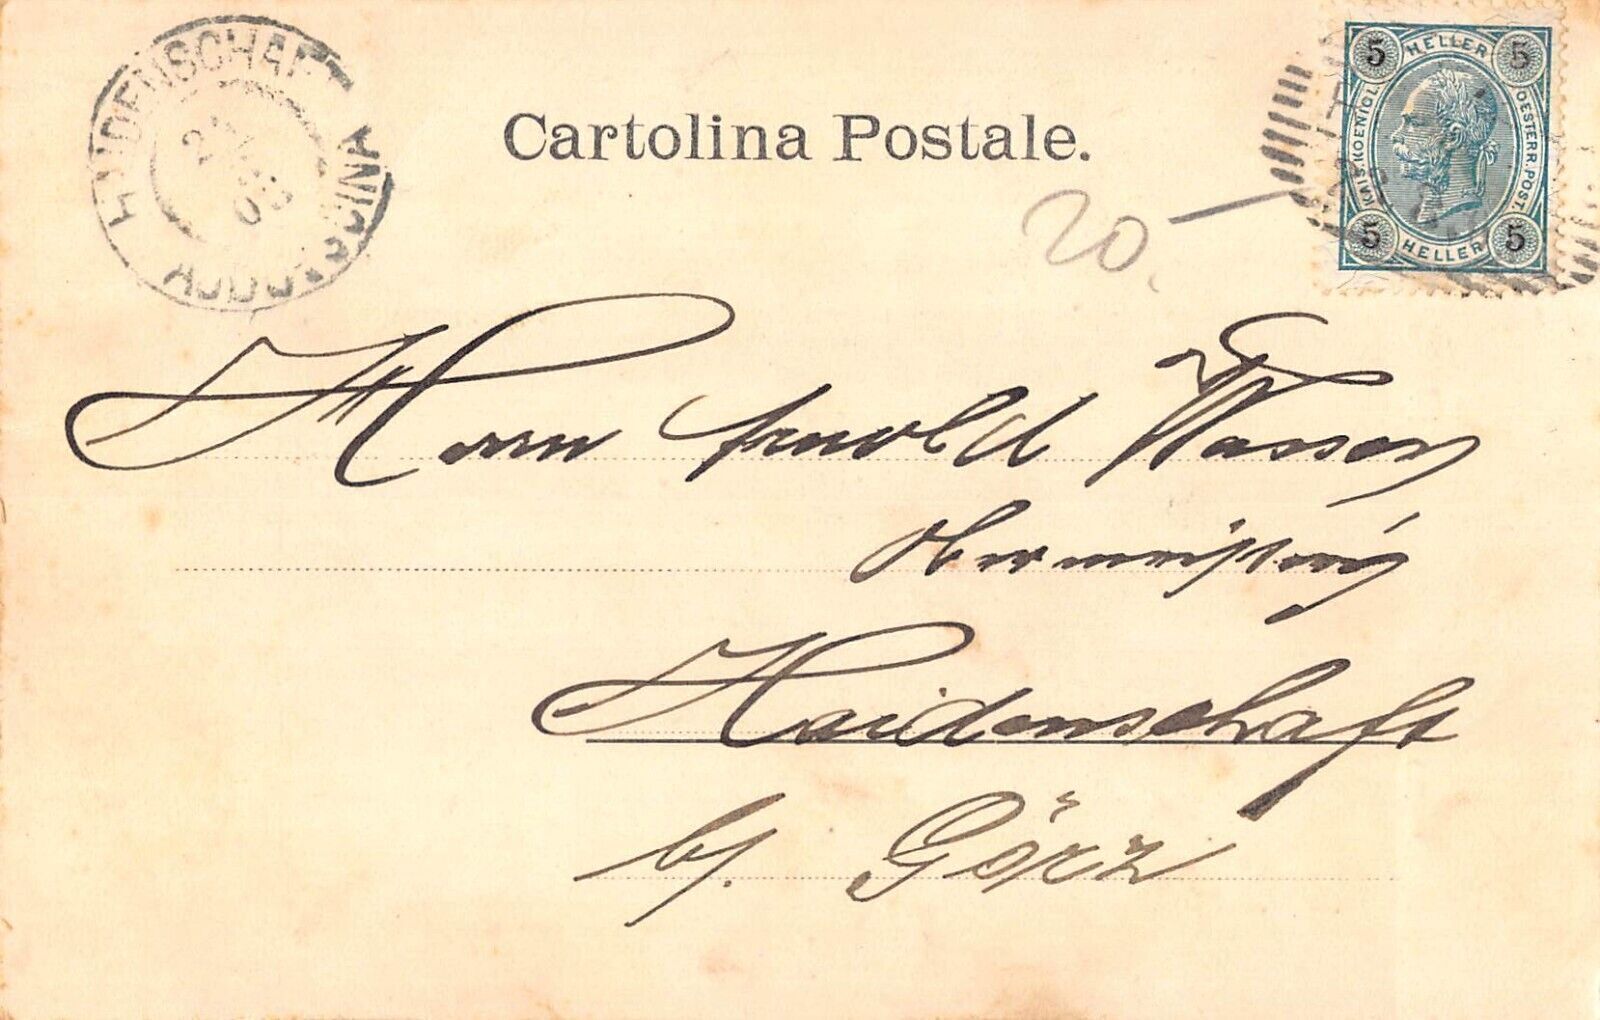 HAIDENSCHAFT
AJDOVSCINA
Cartolina Postale.
20.-
5 HELLER 5
KAIS. KOENIGL.
OESTERR. POST.
5 HELLER 5
Herrn Arnold
Haidenschaft
b/. Görz